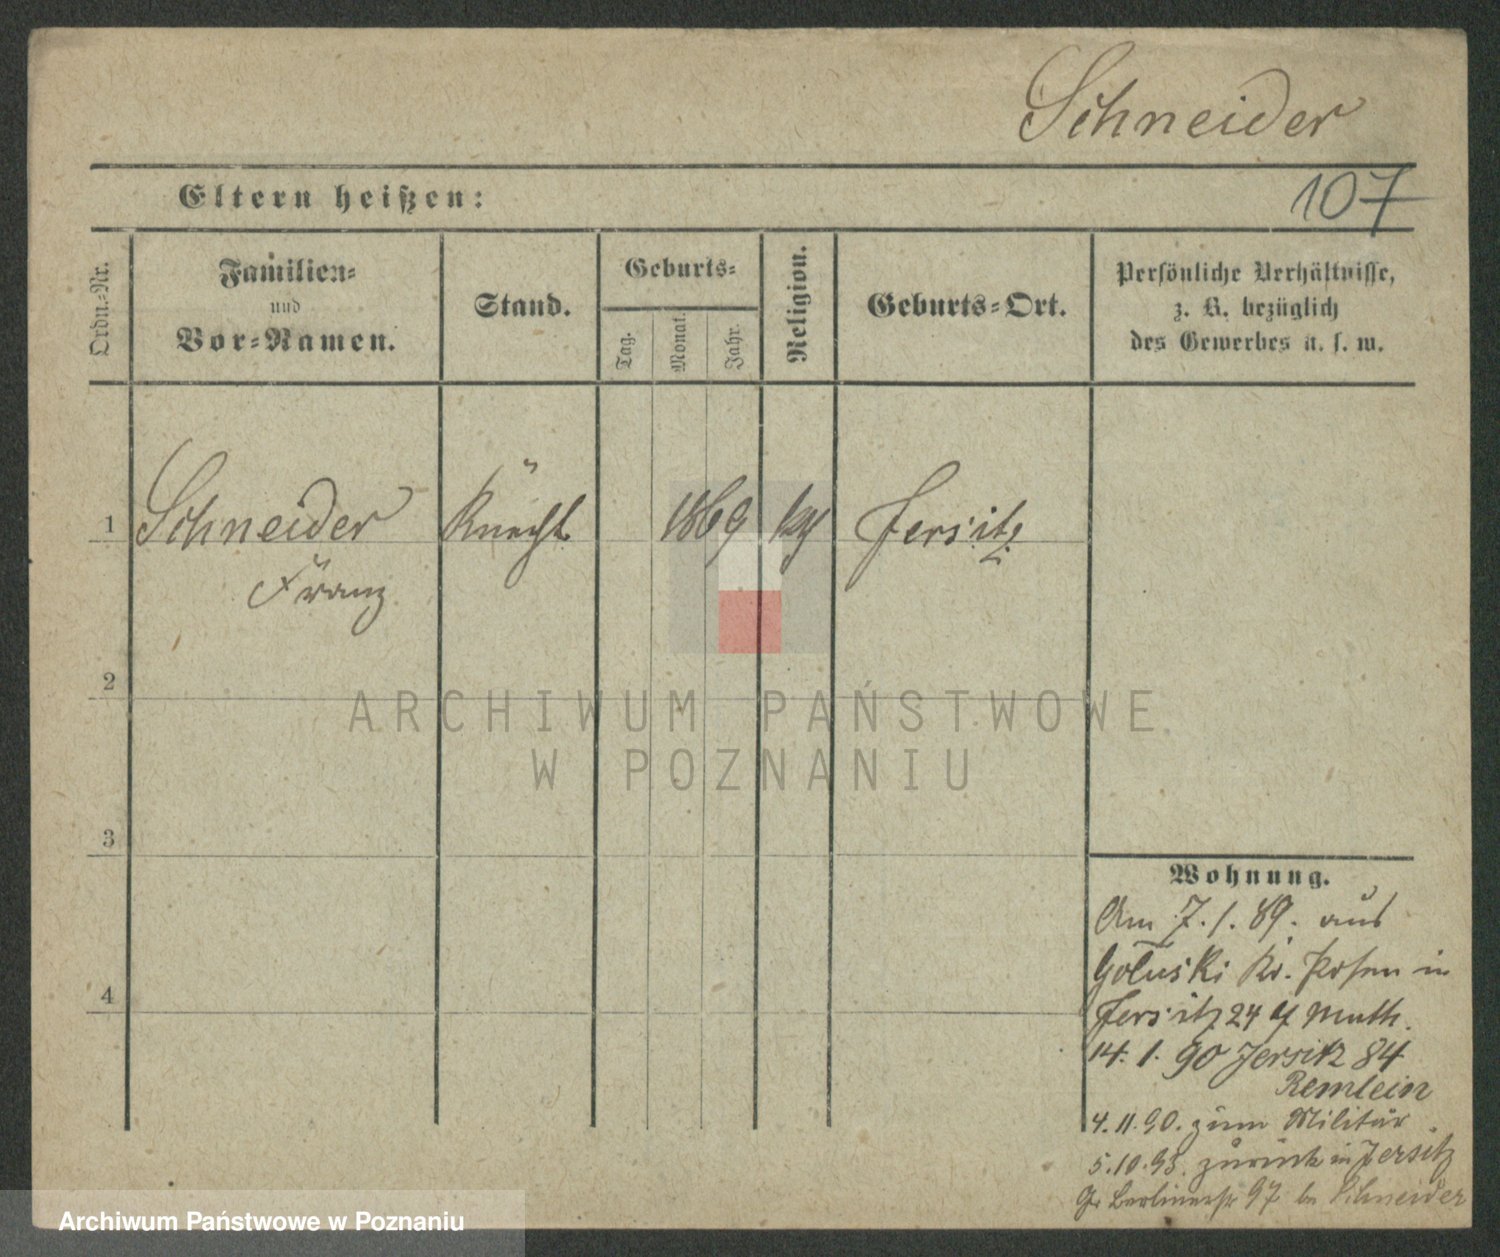 Schneider
Eltern heißen:
107
Ordn.-Nr.
Familien-
und
Vor-Namen.
Stand.
Geburts-
Tag.
Monat.
Jahr.
Religion.
Geburts-Ort.
Persönliche Verhältnisse,
z. B. bezüglich
des Gewerbes u. s. w.
1
Schneider
Franz
Knecht
1869
Jersitz
2
ARCHIWUM PAŃSTWOWE
W POZNANIU
3
4
Wohnung.
Am 7. 1. 89. aus
Goluski Kr. Posen in
Jersitz 24 Muth.
14. 1. 90 Jersitz 84
Remlein
4. 11. 90. zum Militär
5. 10. 93. zurück in Jersitz
Gr Berlinerstr 97 Schneider
Archiwum Państwowe w Poznaniu